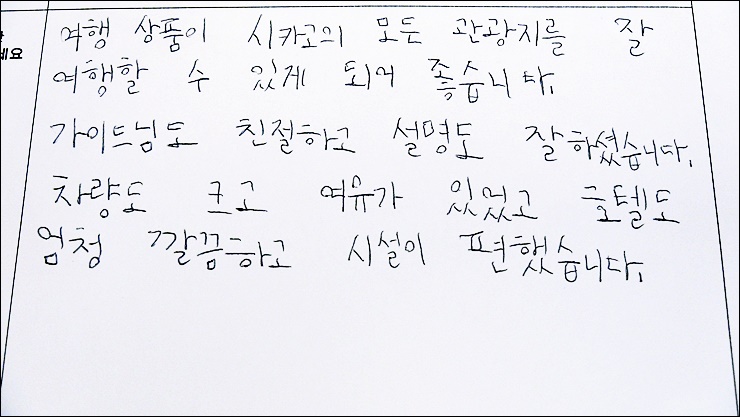 여행 상품이 시카고의 모든 관광지를 잘
여행할 수 있게 되어 좋습니다.
가이드님도 친절하고 설명도 잘하셨습니다.
차량도 크고 여유가 있었고 호텔도
엄청 깔끔하고 시설이 편했습니다.
세요